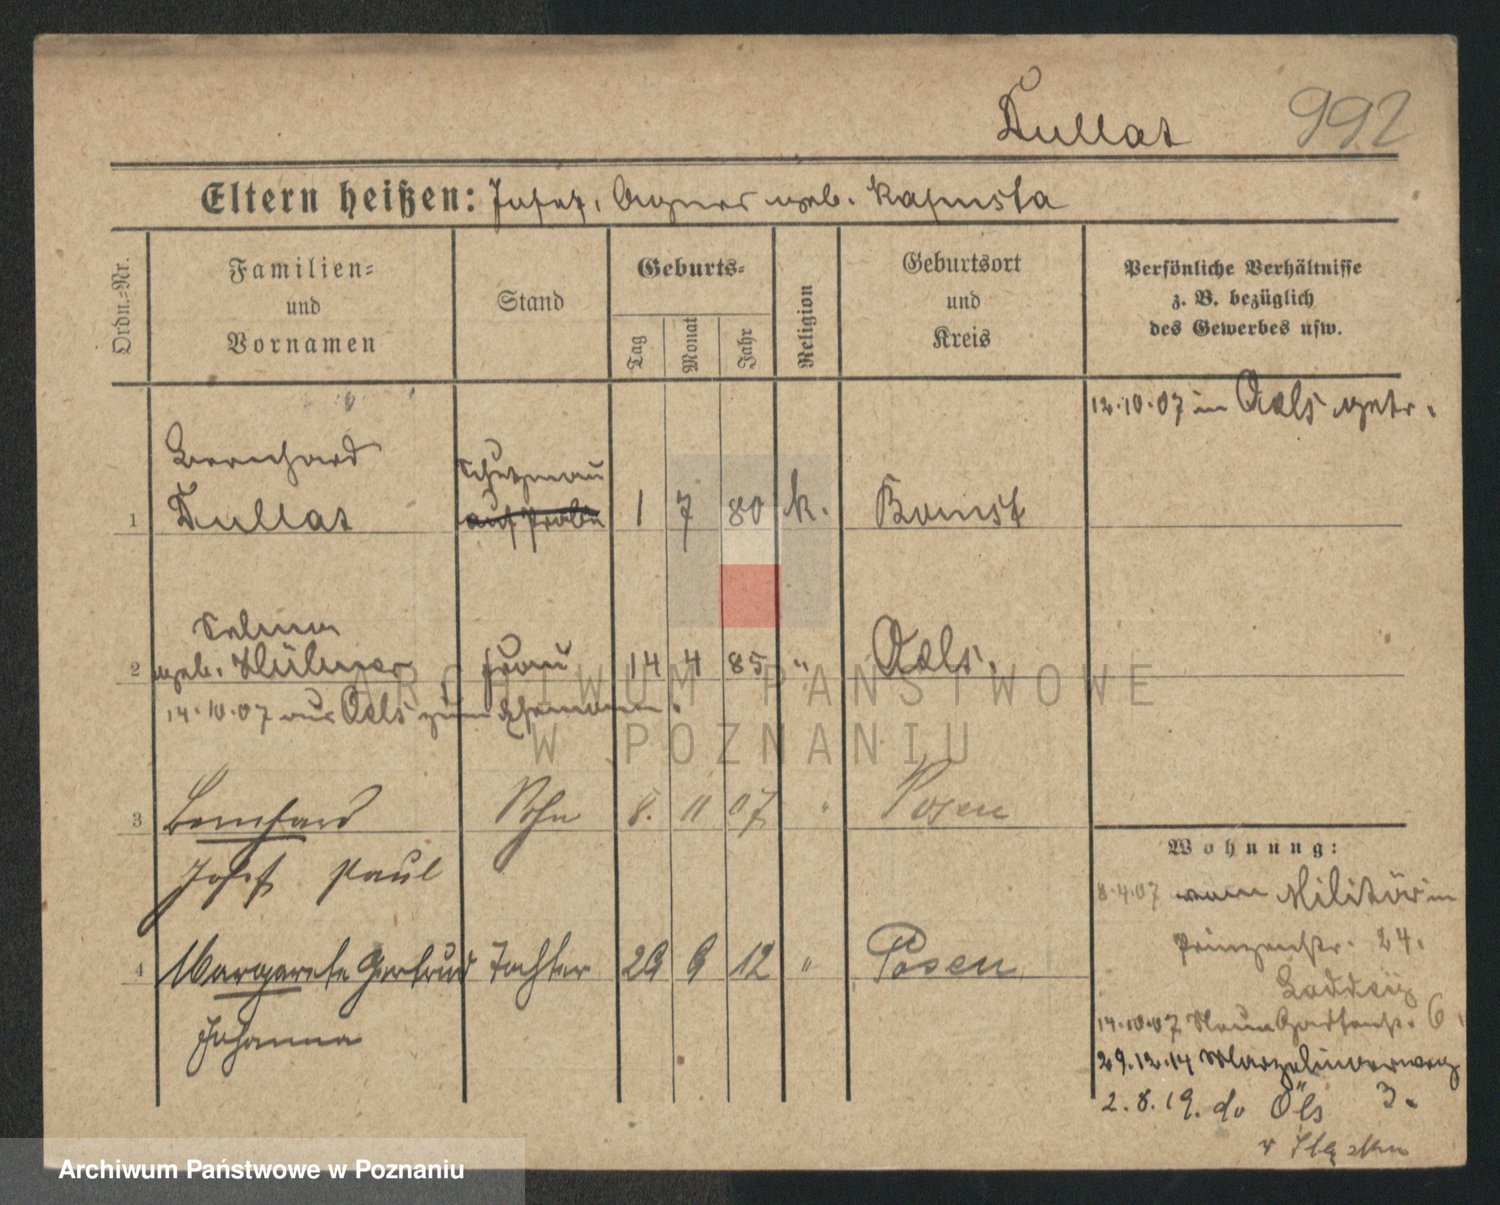 Dullat 992
Eltern heißen: Josef, Agnes geb. Kapusta
Ordn.=Nr.
Familien=
und
Vornamen
Stand
Geburts=
Tag
Monat
Jahr
Religion
Geburtsort
und
Kreis
Persönliche Verhältnisse
z. B. bezüglich
des Gewerbes usw.
12.10.07 in Oels getr.
Bernhard
Schutzmann
1 Dullat auf Probe 1 7 80 k. Bomst
Selma
2 geb. Hübner Frau 14 4 85 " Oels.
14.10.07 aus Oels zum Ehemann.
3 Bernhard Sohn 8. 11 07 " Posen
Josef Paul
4 Margarete Gertrud Tochter 29 9 12 " Posen
Johanna
Wohnung:
8.4.07 vom Militär in
Prinzenstr. 24.
14.10.07 Neue Gartenstr. 6.
29.12.14 Marzelinerweg
3.
2.8.19. do Öls
ARCHIWUM PAŃSTWOWE
W POZNANIU
Archiwum Państwowe w Poznaniu